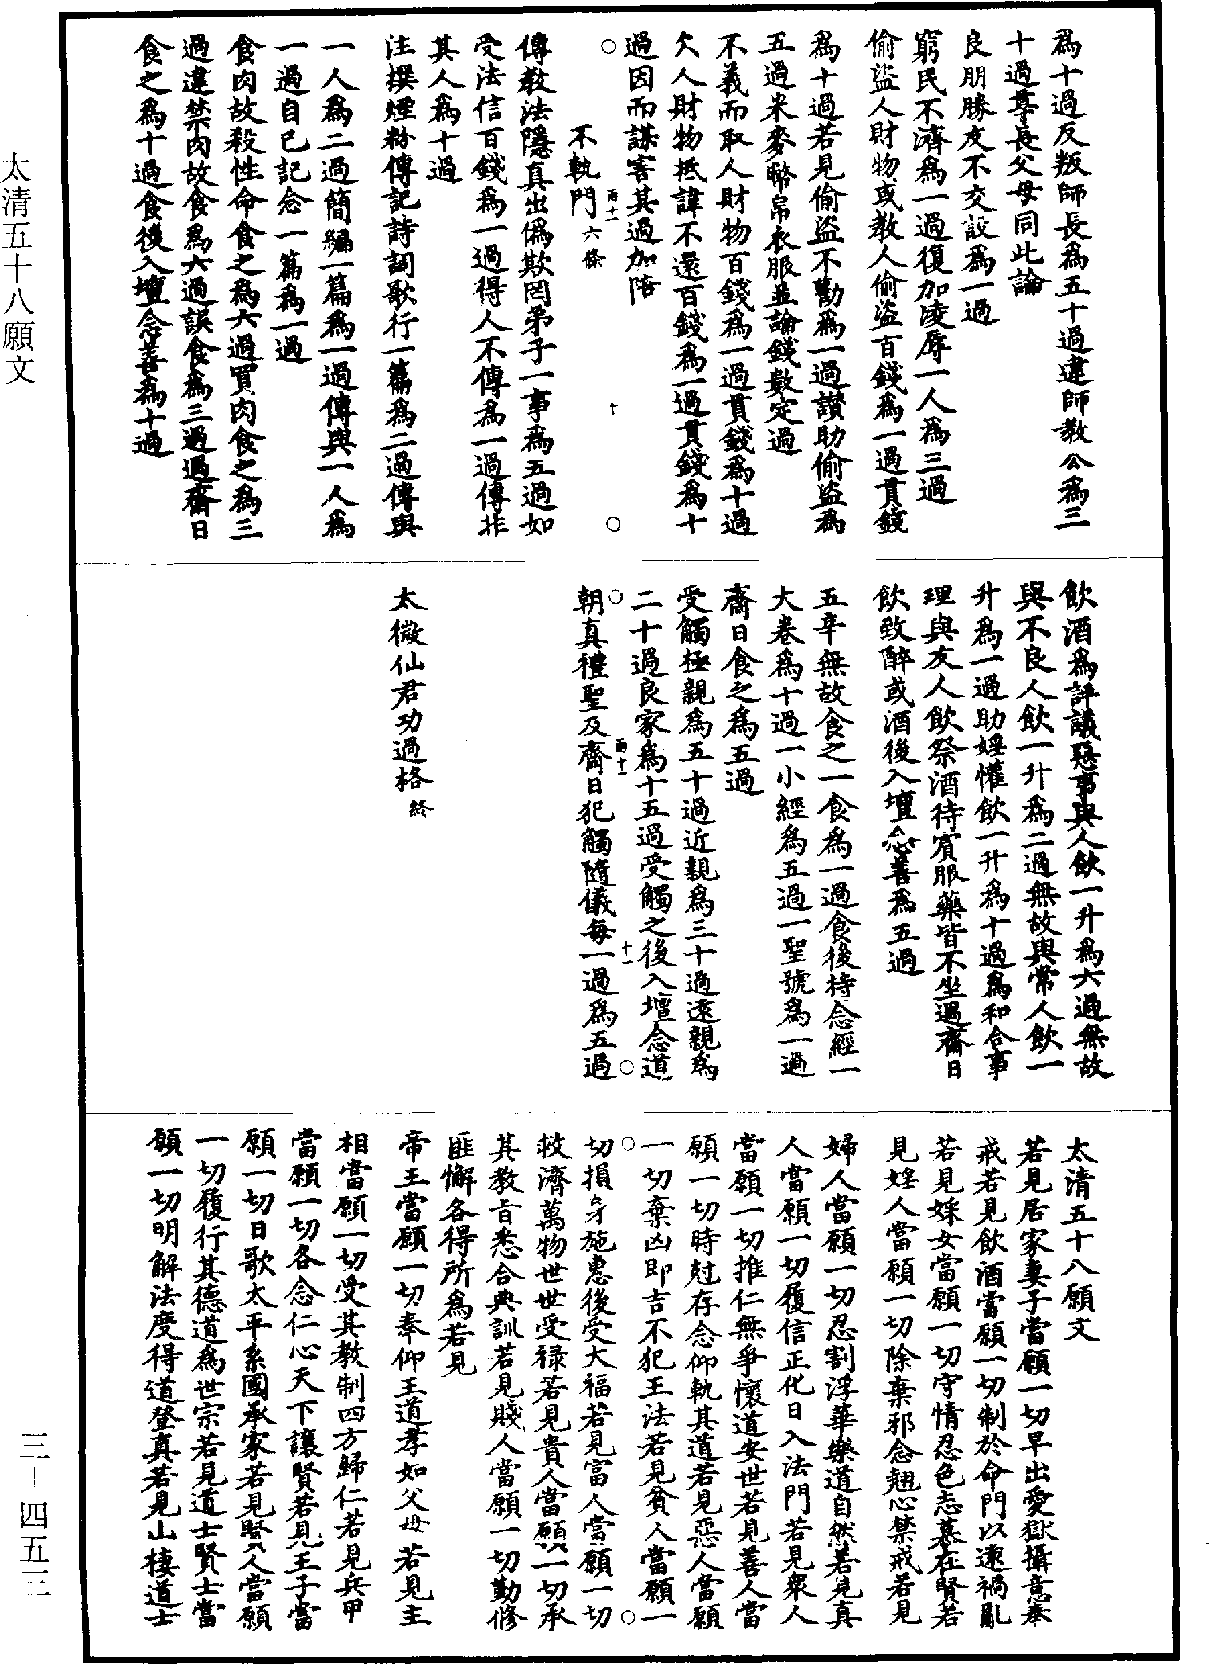 爲十過反叛師長爲五十過違師教公爲三
十過尊長父母同此論
良朋勝友不交設爲一過
窮民不濟爲一過復加陵辱一人爲三過
偷盜人財物或教人偷盜百錢爲一過貫錢
爲十過若見偷盜不勸爲一過讃助偷盜爲
五過米麥幣帛衣服並論錢數定過
不義而取人財物百錢爲一過貫錢爲十過
欠人財物抵諱不還百錢爲一過貫錢爲十
過因而謀害其過加陪
不軌門六條
傳教法隱真出僞欺罔弟子一事爲五過如
受法信百錢爲一過得人不傳爲一過傳非
其人爲十過
注撰煙粉傳記詩詞歌行一篇爲二過傳與
一人爲二過簡編一篇爲一過傳與一人爲
一過自己記念一篇爲一過
食肉故殺性命食之爲六過買肉食之爲三
過違禁肉故食爲六過誤食爲三過遇齋日
食之爲十過食後入壇念善爲十過
飲酒爲評議惡事與人飲一升爲六過無故
與不良人飲一升爲二過無故與常人飲一
升爲一過助婬懽飲一升爲十過爲和合事
理與友人飲祭酒待賓服藥皆不坐過齋日
飲致醉或酒後入壇念善爲五過
五辛無故食之一食爲一過食後持念經一
大卷爲十過一小經爲五過一聖號爲一過
齋日食之爲五過
受觸極親爲五十過近親爲三十過遠親爲
二十過良家爲十五過受觸之後入壇念道
朝真禮聖及齋日犯觸隨儀每一過爲五過
太微仙君功過格終
太清五十八願文
若見居家妻子當願一切早出愛獄攝意奉
戒若見飲酒當願一切制於命門以遠禍亂
若見婇女當願一切守情忍色志慕在賢若
見婬人當願一切除棄邪念翹心禁戒若見
婦人當願一切忍割浮華樂道自然若見真
人當願一切履信正化日入法門若見衆人
當願一切推仁無爭懷道安世若見善人當
願一切時尅存念仰軌其道若見惡人當願
一切棄凶即吉不犯王法若見貧人當願一
切損身施惠後受大福若見富人當願一切
救濟萬物世世受祿若見貴人當願一切承
其教旨悉合典訓若見賤人當願一切勤修
匪懈各得所爲若見
帝王當願一切奉仰王道孝如父母若見主
相當願一切受其教制四方歸仁若見兵甲
當願一切各念仁心天下讓賢若見王子當
願一切日歌太平系國承家若見賢人當願
一切履行其德道爲世宗若見道士賢士當
願一切明解法度得道登真若見山棲道士
太清五十八願文
三—四五三